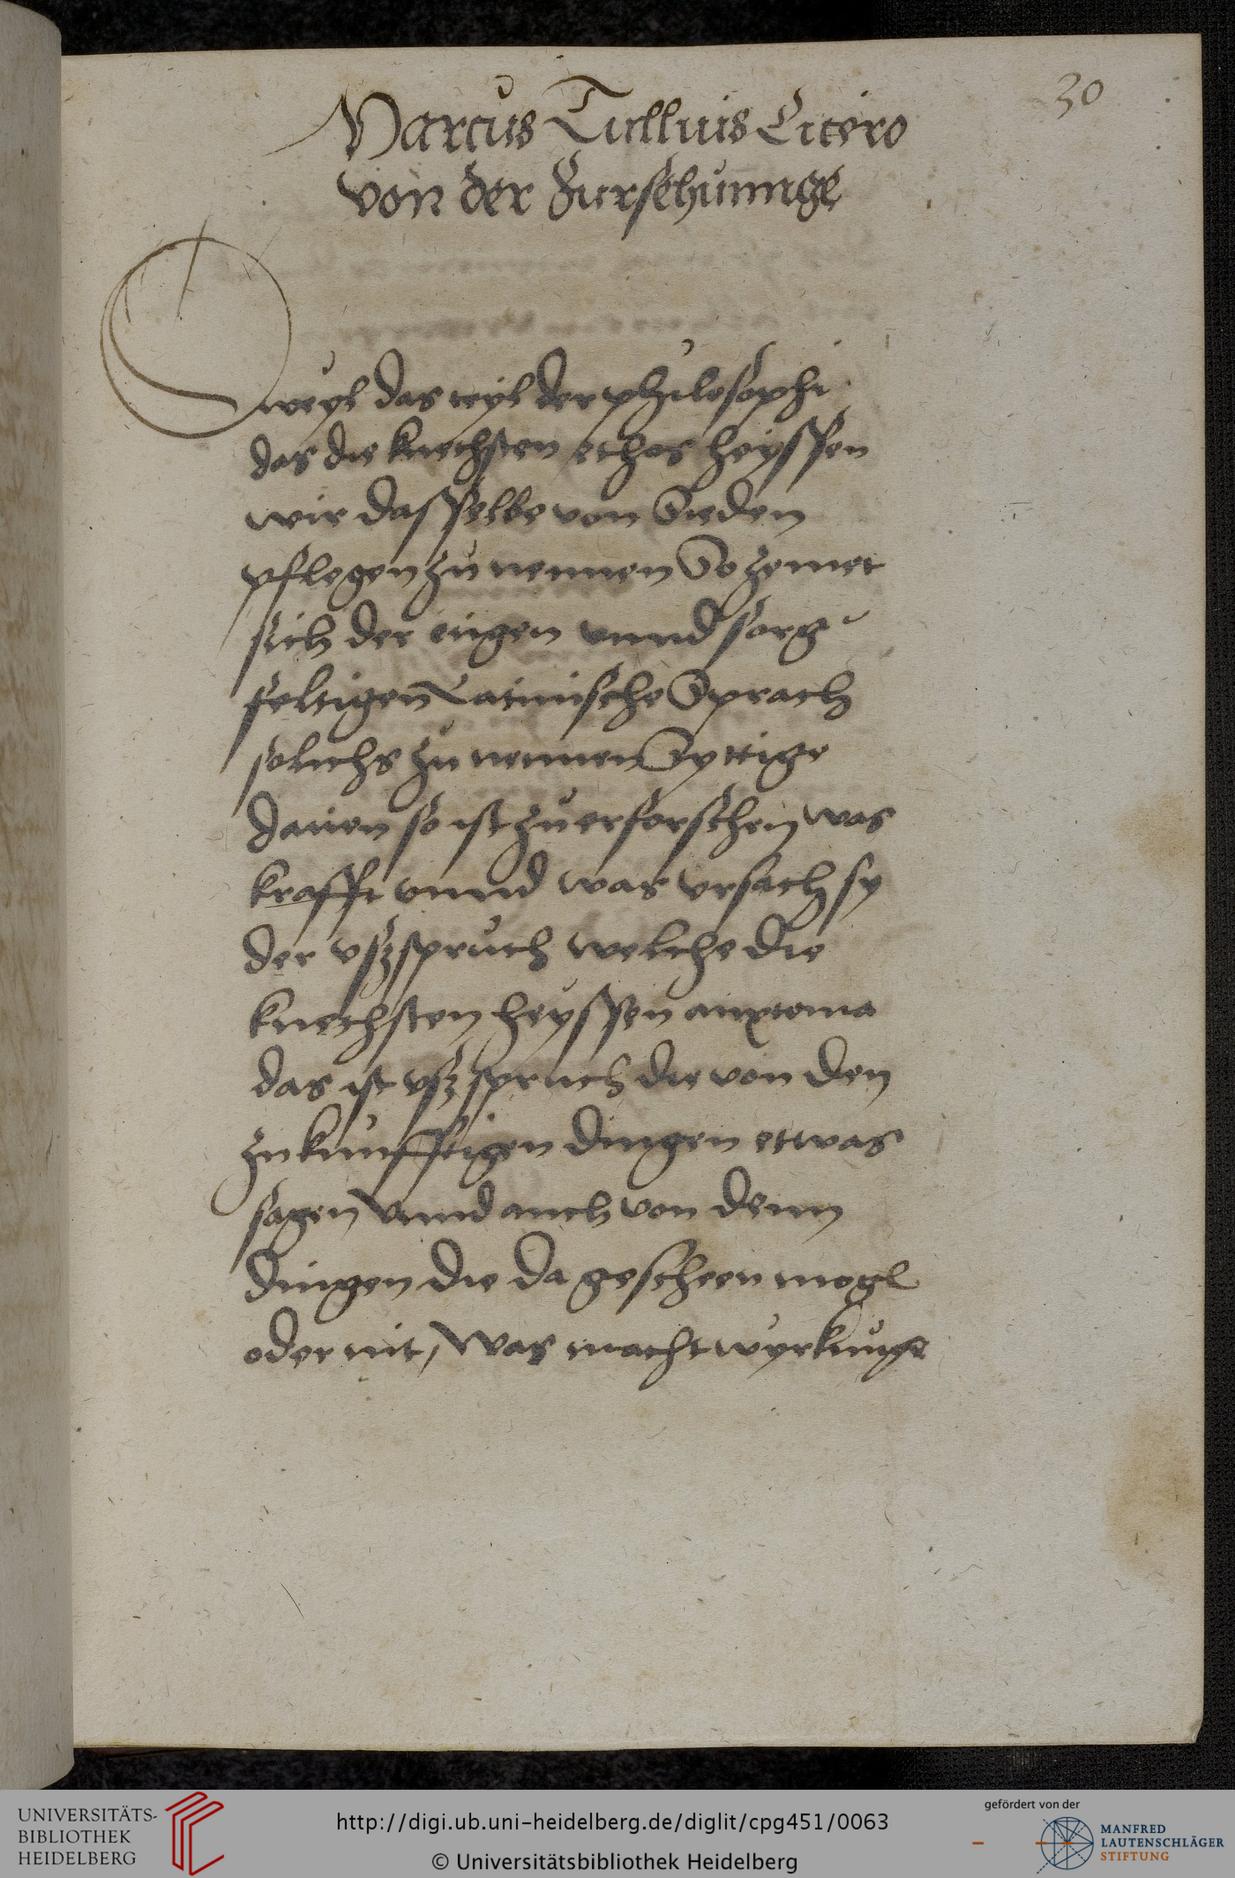 30
Marcus Tullius Cicero
von der Fursehunnge
Dweyl das teyl der philosophi
das die kriechsten ethos heyssen
wir dasselbe von Sieden
pflegen zu nennen So zemet
sich der eigen vnnd sorg
feltigen Latinische Sprach
solichs zu nennen Syttige
dauon so ist zu erforschen was
krafft vnnd was vrsach sy
der vszspruch welche die
kriechsten heyssen anxioma
das ist vszspruch die von den
zukunfftigen dingen etwas
sagen Vnnd auch von denn
dingen die da gescheen mogl
oder nit, Was macht wyrkunge
UNIVERSITÄTS-
BIBLIOTHEK
HEIDELBERG
http://digi.ub.uni-heidelberg.de/diglit/cpg451/0063
© Universitätsbibliothek Heidelberg
gefördert von der
MANFRED
LAUTENSCHLÄGER
STIFTUNG